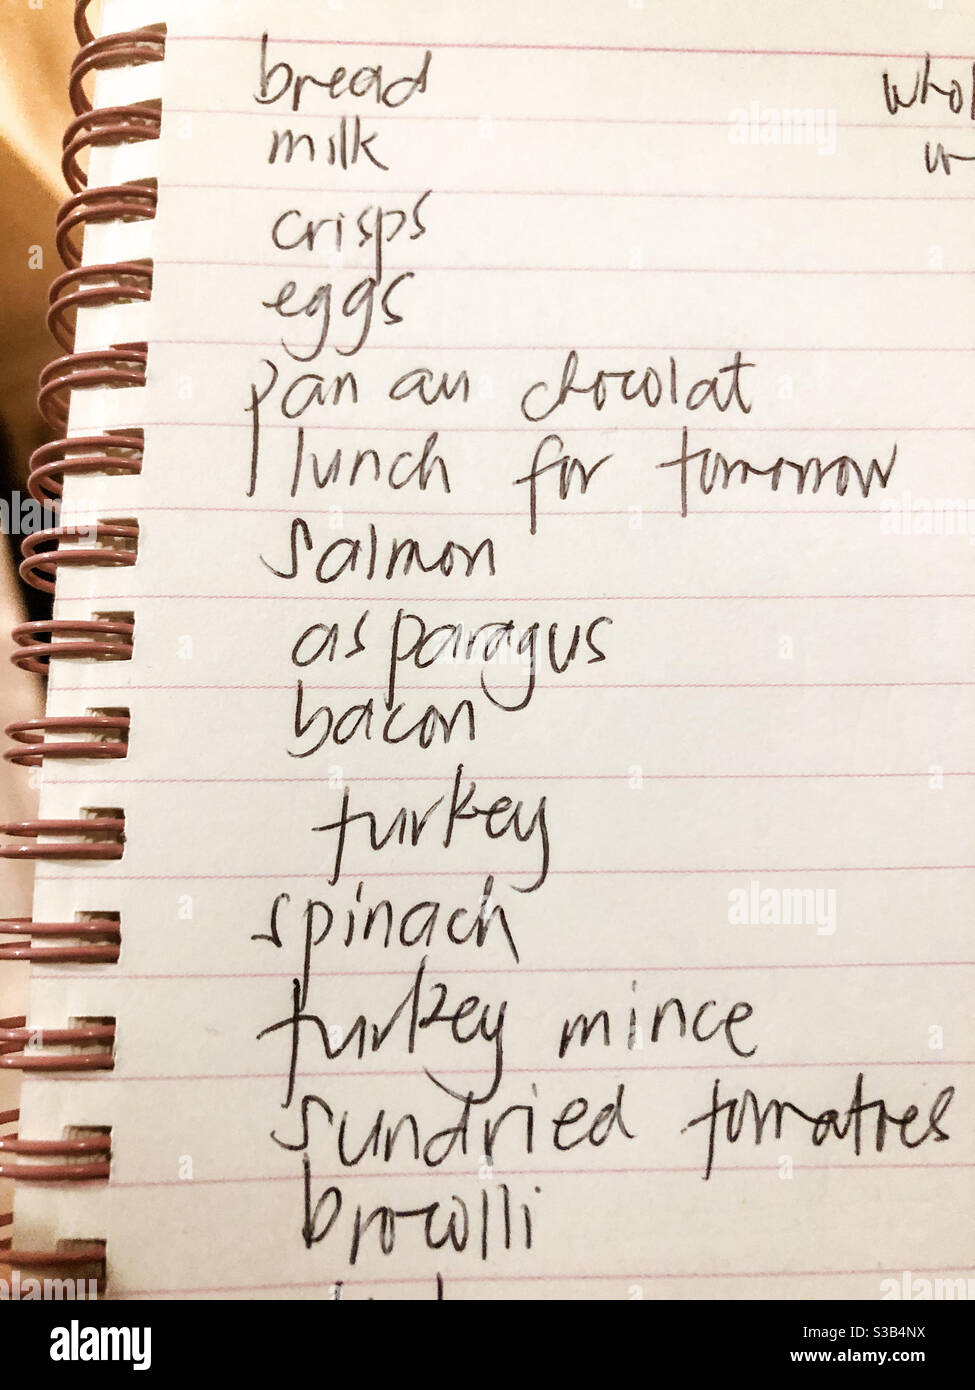 bread
milk
crisps
eggs
pan au chocolat
lunch for tomorrow
salmon
asparagus
bacon
turkey
spinach
turkey mince
sundried tomatoes
brocolli
alamy
Image ID: S3B4NX
www.alamy.com